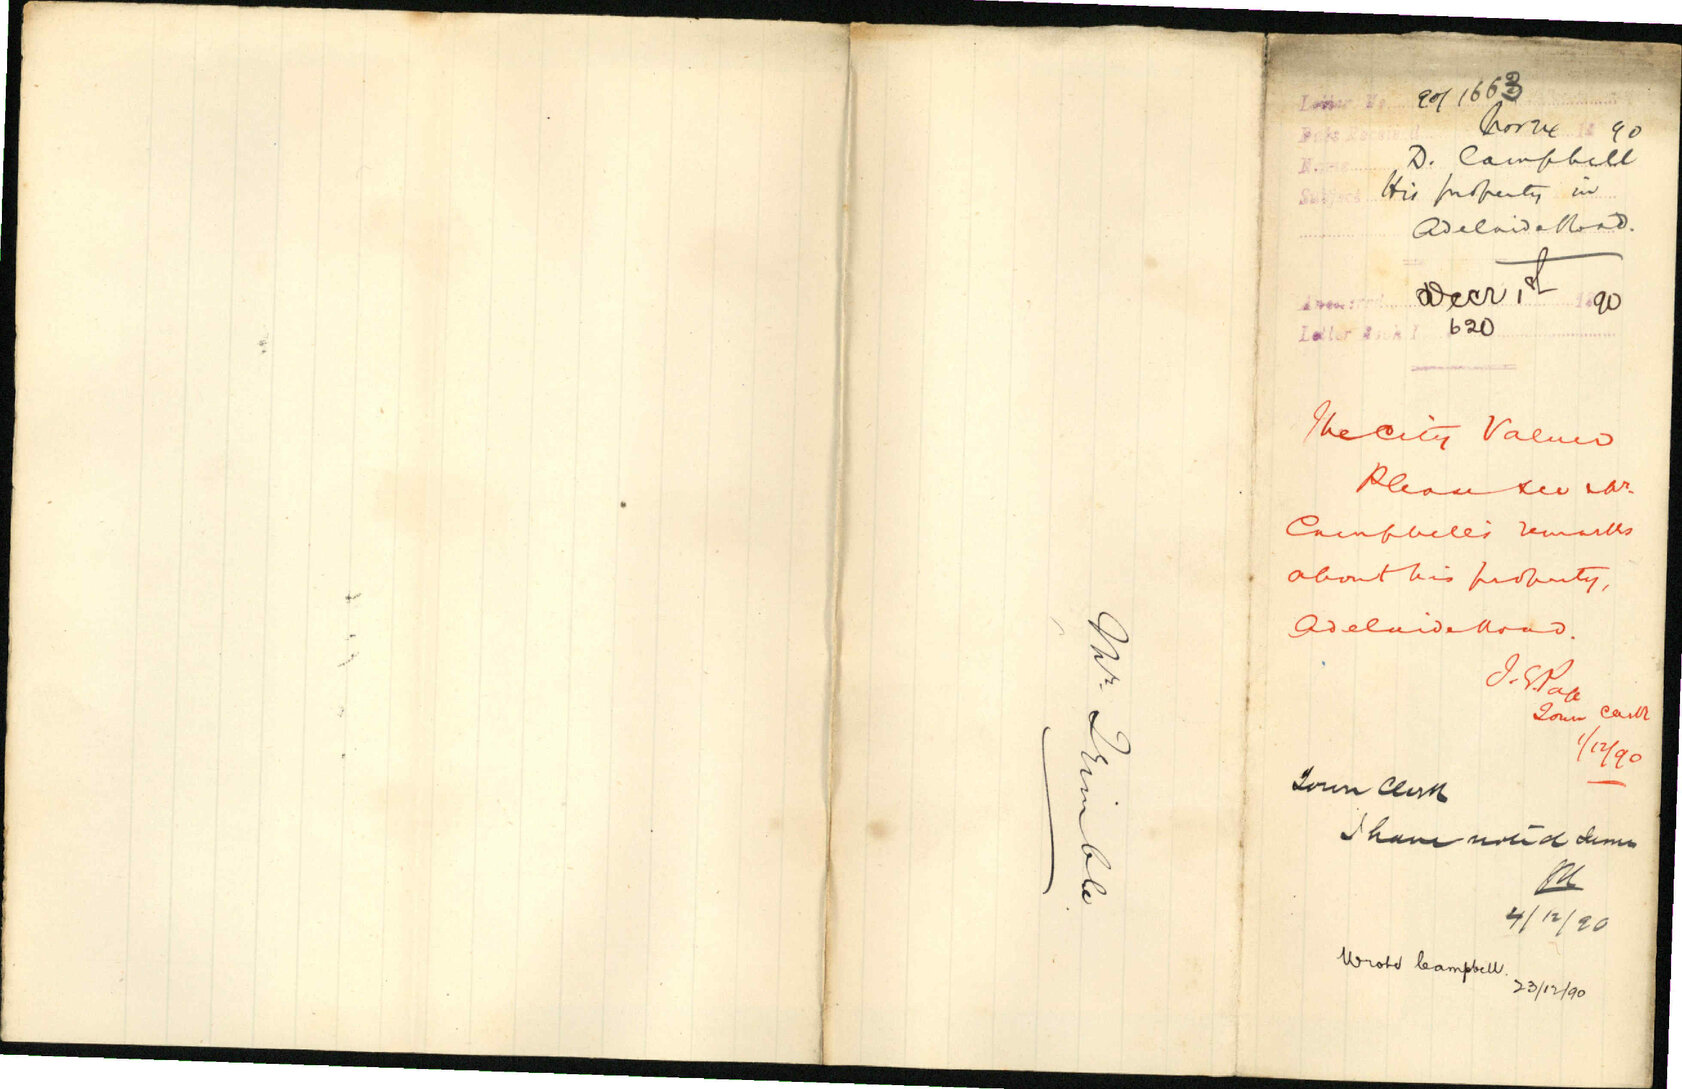 Letter No. 90/1663
Date Received Nov 24 1890
Name D. Campbell
Subject His property in
Adelaide Road.
Answered Decr 1st 1890
Letter Book 620
The City Valuer
Please see Mr.
Campbell's remarks
about his property,
Adelaide Road.
J. E. Page
Town Clerk
1/12/90
Town Clerk
I have noted
4/12/90
Wrote Campbell.
23/12/90
Mr. Trimble.